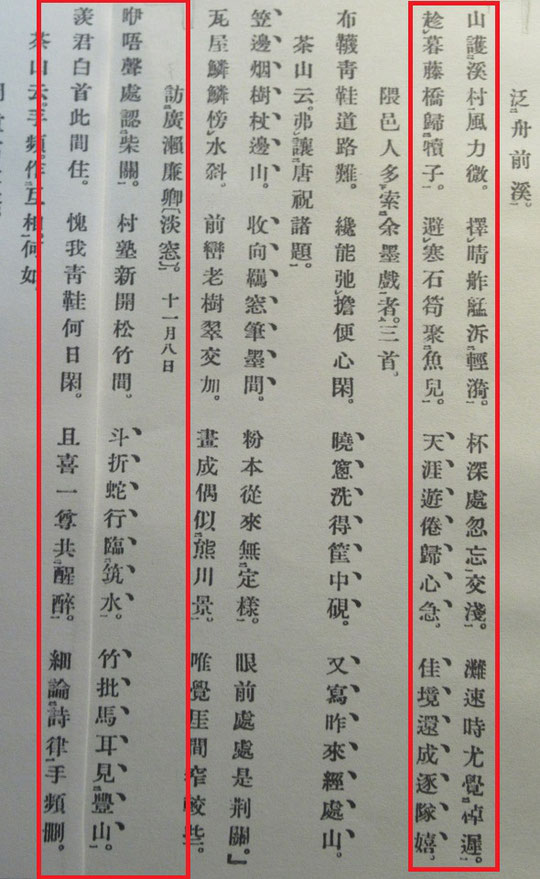 泛舟前溪。
山護溪村風力微。擇晴舴艋泝輕漪。杯深處忽忘交淺。灘速時尤覺棹遲。
趁暮藤橋歸犢子。避寒石笱聚魚兒。天涯遊倦歸心急。佳境還成逐隊嬉。
隈邑人多索余墨戲者。三首。
布韈靑鞋道路難。纔能弛擔便心閑。曉窻洗得筐中硯。又寫昨來經處山。
茶山云。弗讓唐祝諸題。
笠邊烟樹杖邊山。收向羈窓筆墨間。粉本從來無定樣。眼前處處是荆關。』
瓦屋鱗鱗傍水斜。前巒老樹翠交加。畫成偶似熊川景。唯覺厓間窄皴些。
訪廣瀨廉卿〔淡窓〕。 十一月八日
咿唔聲處認柴關。村塾新開松竹間。斗折蛇行臨筑水。竹批馬耳見豐山。
羨君白首此間住。愧我靑鞋何日閑。且喜一尊共醒醉。細論詩律手頻刪。
茶山云。手頻。作互相何如